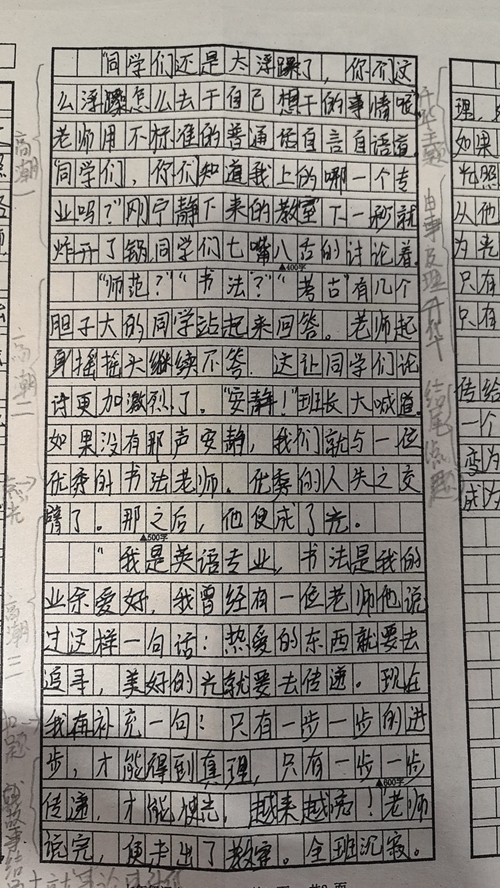 "同学们还是太浮躁了，你们这
么浮躁怎么去干自己想干的事情呢"
老师用不标准的普通话自言自语道
"同学们，你们知道我上的哪一个专
业吗？"刚宁静下来的教室下一秒就
炸开了锅同学们七嘴八舌的讨论着。
▲400字
"师范？""书法？""考古"有几个
胆子大的同学站起来回答。老师起
身摇摇头继续不答。这让同学们讨
论更加激烈了。"安静！"班长大喊道。
如果没有那声安静，我们就与一位
优秀的书法老师。优秀的人失之交
臂了。那之后，他便成了光。
▲500字
"我是英语专业，书法是我的
业余爱好，我曾经有一位老师他说
过这样一句话：热爱的东西就要去
追寻，美好的光就要去传递。现在
我再补充一句！只有一步一步的进
步，才能得到真理，只有一步一步
▲600字
传递，才能使光，越来越亮！老师
说完，便走出了教室。全班沉寂。
高潮一
高潮二
点光
高潮三
扣题
升华主题
由事及理
升华
结尾点题
理，
如果
从他
为光
只有
只有
传给
一个
变为
成为